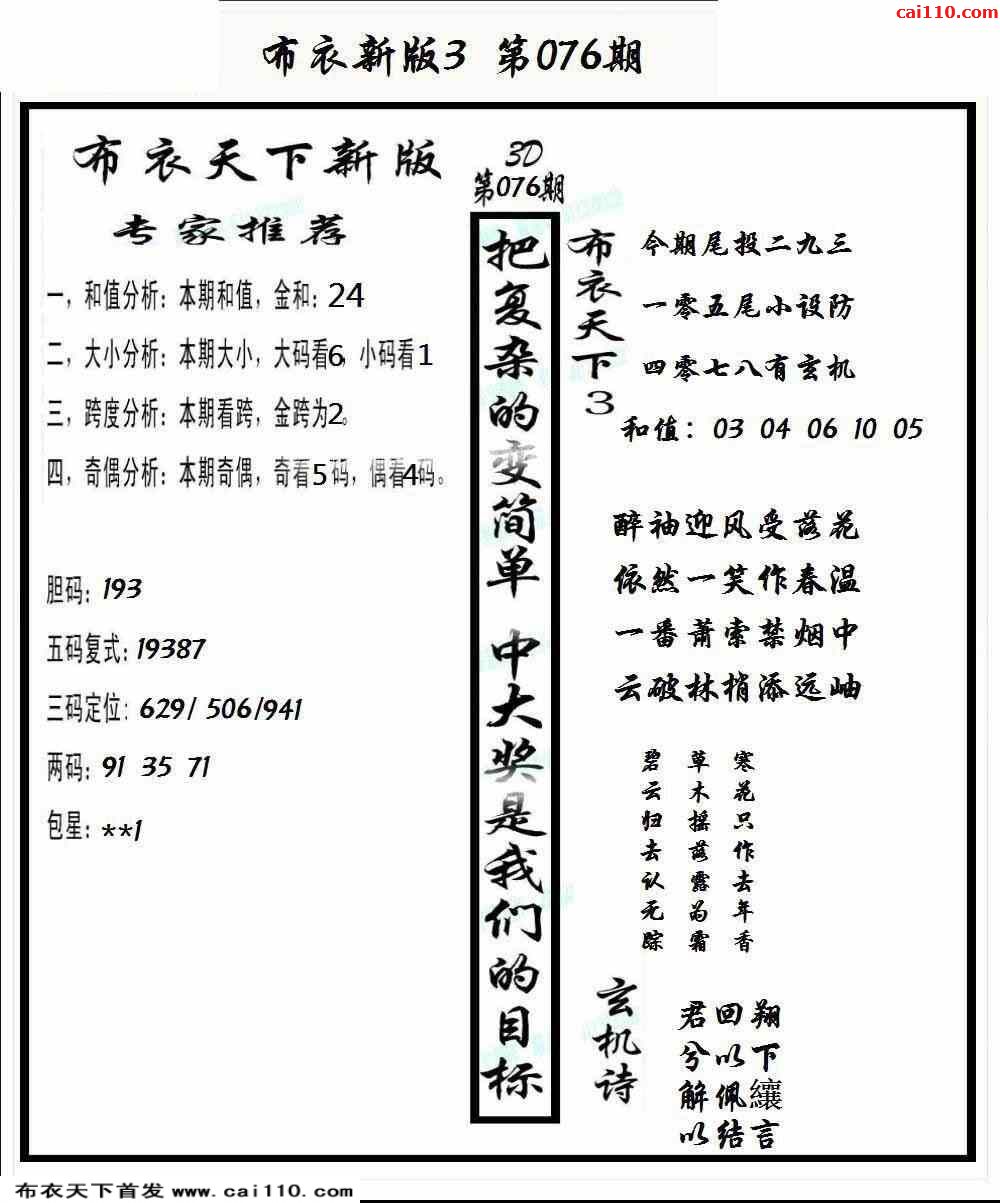 cai110.com
布衣新版3 第076期
布衣天下新版
专家推荐
一，和值分析：本期和值，金和：24
二，大小分析：本期大小，大码看6，小码看1
三，跨度分析：本期看跨，金跨为2。
四，奇偶分析：本期奇偶，奇看5码，偶看4码。
胆码：193
五码复式：19387
三码定位：629/ 506/941
两码：91 35 71
包星：**1
3D
第076期
把复杂的变简单 中大奖是我们的目标
布衣天下3
今期尾投二九三
一零五尾小设防
四零七八有玄机
和值：03 04 06 10 05
醉袖迎风受落花
依然一笑作春温
一番萧索禁烟中
云破林梢添远岫
寒花只作去年香
草木摇落露为霜
碧云归去认无踪
玄机诗
君回翔
兮以下
解佩纕
以结言
布衣天下首发 www.cai110.com